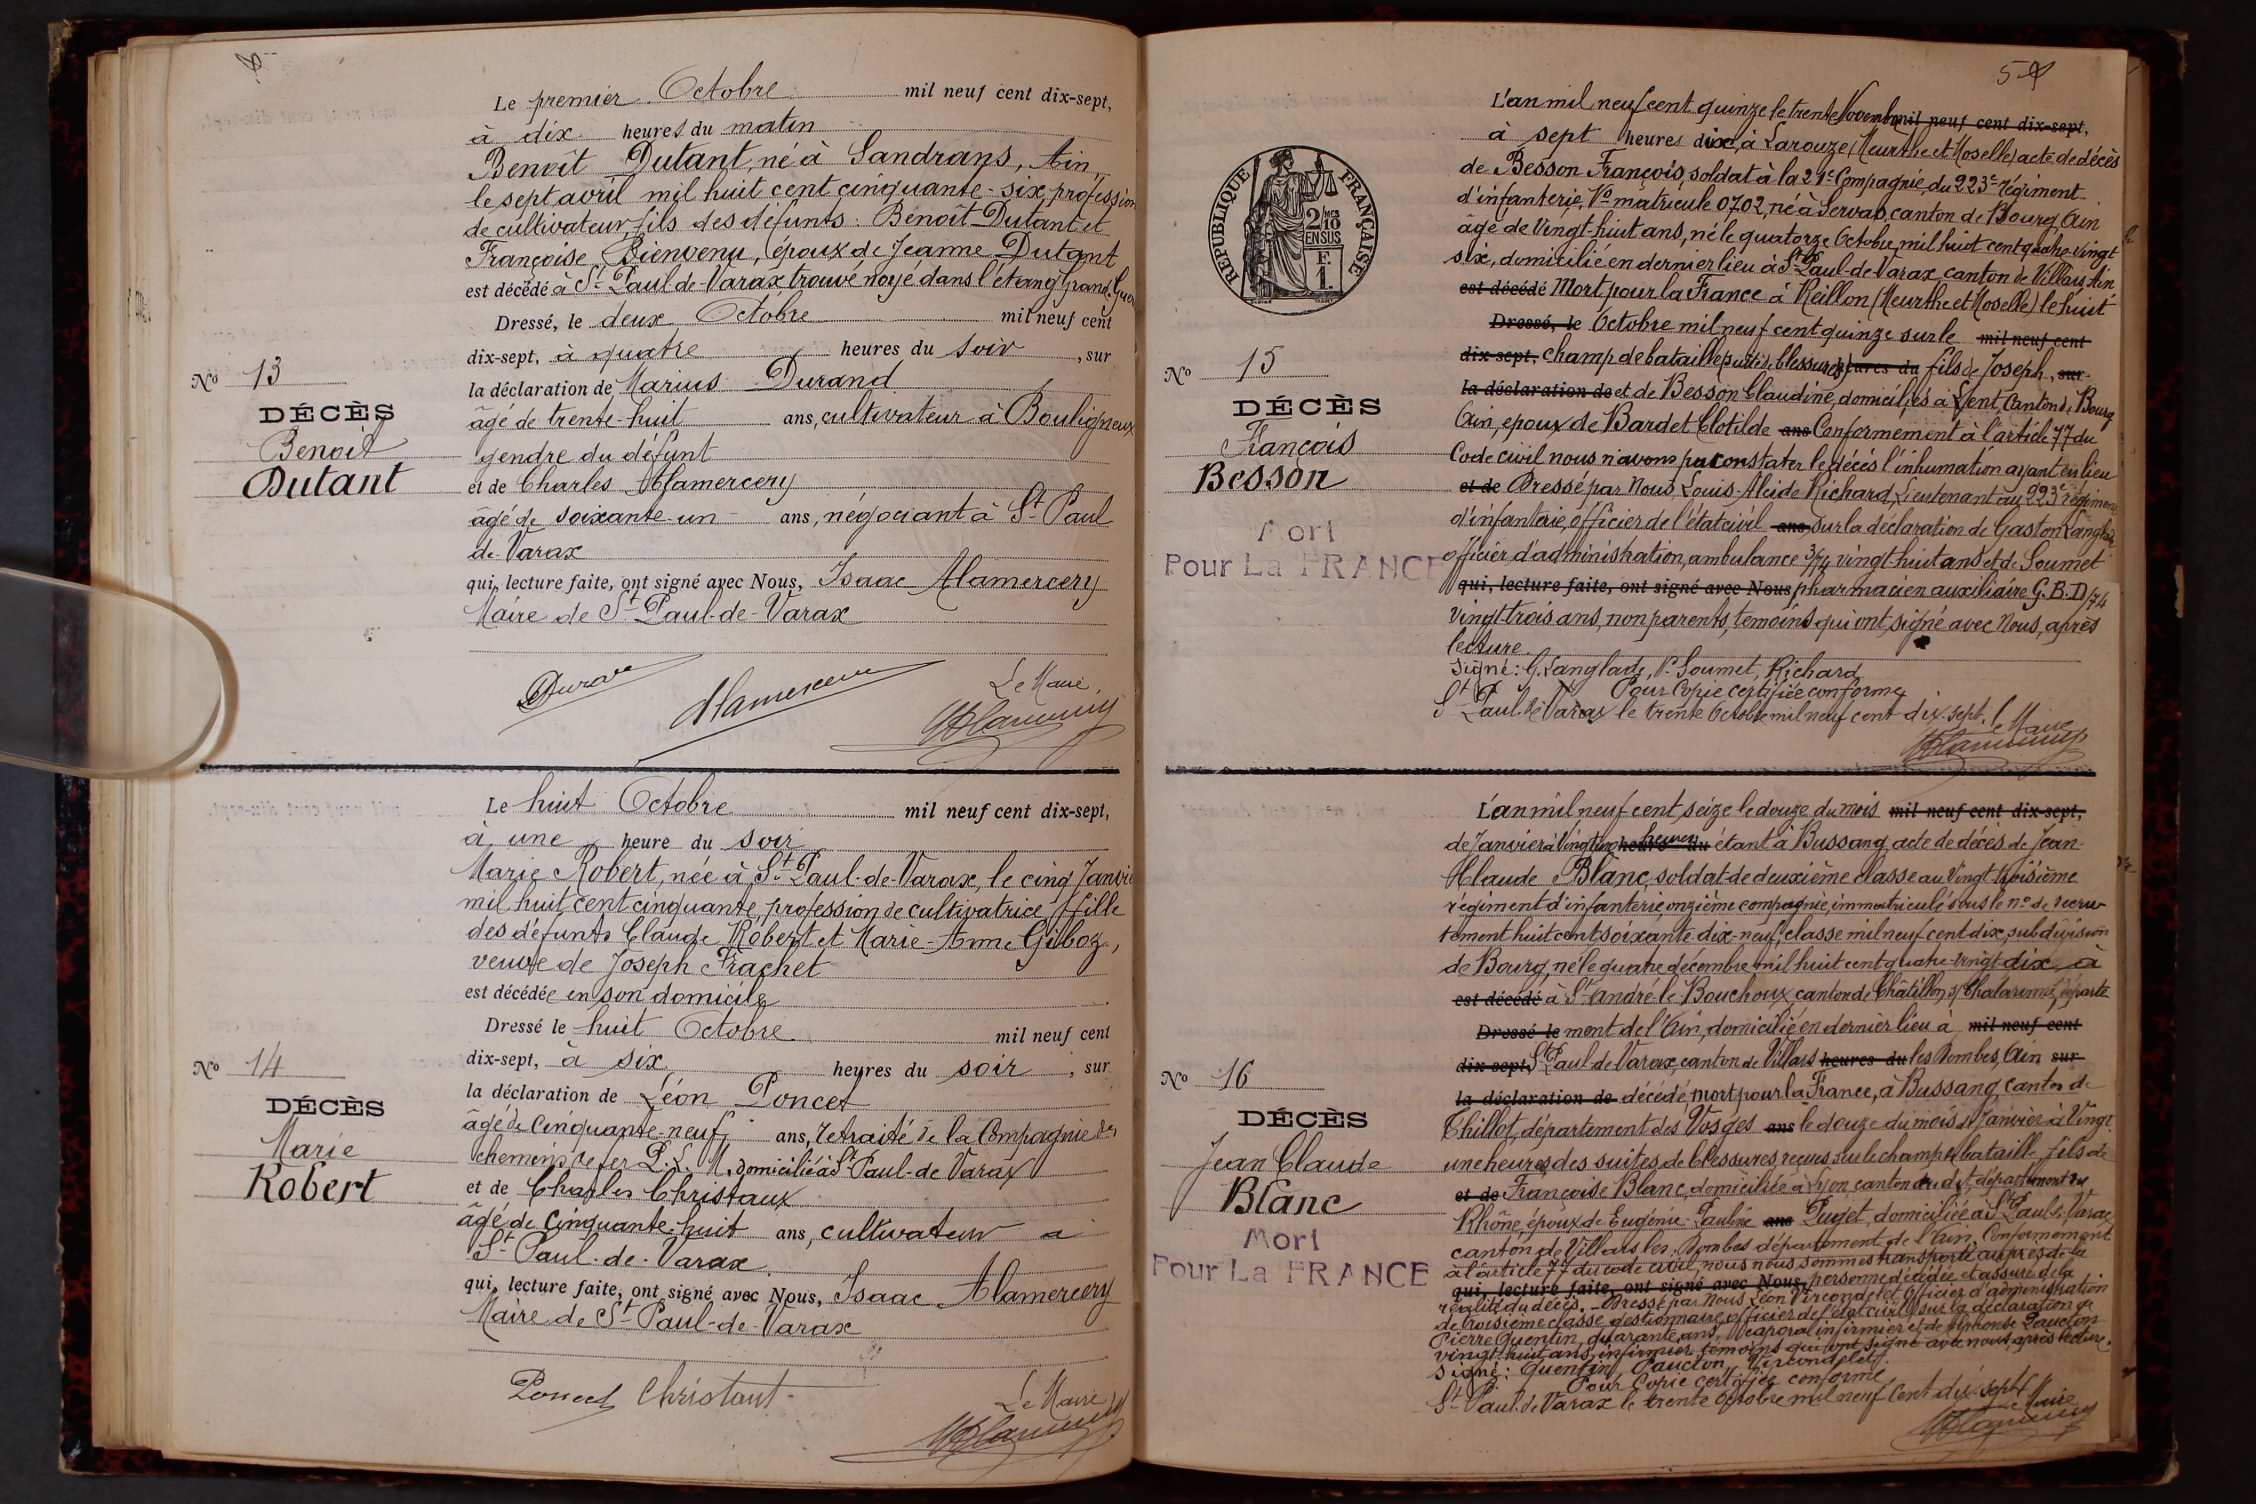 Le premier Octobre mil neuf cent dix-sept,
à dix heures du matin
Benoît Dutant, né à Sandrans, Ain,
le sept avril mil huit cent cinquante-six, profession
de cultivateur, fils des défunts: Benoît Dutant et
Françoise Bienvenu, époux de Jeanne Dutant
est décédé à St Paul-de-Varax trouvé noyé dans l'étang Grand
Dressé, le deux Octobre mil neuf cent
dix-sept, à quatre heures du soir, sur
la déclaration de Marius Durand
âgé de trente-huit ans, cultivateur à Bouligneux
gendre du défunt
et de Charles Alamercery
âgé de soixante-un ans, négociant à St Paul
de-Varax
qui, lecture faite, ont signé avec Nous, Isaac Alamercery
Maire de St Paul-de-Varax
Le Maire,
No 13
DÉCÈS
Benoît
Dutant
Le huit Octobre mil neuf cent dix-sept,
à une heure du soir
Marie Robert, née à St Paul-de-Varax, le cinq Janvier
mil huit cent cinquante, profession de cultivatrice, fille
des défunts Claude Robert et Marie-Anne Giboz,
veuve de Joseph Frachet
est décédée en son domicile
Dressé le huit Octobre mil neuf cent
dix-sept, à six heures du soir, sur
la déclaration de Léon Poncet
âgé de cinquante-neuf ans, retraité de la Compagnie des
chemins de fer P.L.M. domicilié à St Paul-de Varax
et de Charles Christaux
âgé de cinquante-huit ans, cultivateur à
St Paul-de-Varax
qui, lecture faite, ont signé avec Nous, Isaac Alamercery
Maire de St Paul-de-Varax
Poncet Christaut
Le Maire
No 14
DÉCÈS
Marie
Robert
5
RÉPUBLIQUE FRANÇAISE
2/10
EN SUS
F.
1.
L'an mil neuf cent quinze le trente Novembre mil neuf cent dix-sept,
à sept heures dix, à Larouze (Meurthe et Moselle) acte de décès
de Besson François, soldat à la 21e Compagnie du 223e régiment
d'infanterie, No matricule 0702, né à Servas, canton de Bourg Ain
âgé de Vingt-huit ans, né le quatorze Octobre, mil huit cent quatre-vingt
six, domicilié en dernier lieu à St Paul-de Varax canton de Villars Ain
est décédé Mort pour la France à Reillon (Meurthe et Moselle) le huit
Dressé, le Octobre mil neuf cent quinze sur le mil neuf cent
dix-sept, champ de bataille (suites de blessures) heures du fils de Joseph, sur
la déclaration de et de Besson Claudine, domiciliés à Lent, Canton de Bourg
Ain, epoux de Bardet Clotilde ans Conformement à l'article 77 du
Code civil nous n'avons pu constater le décès l'inhumation ayant eu lieu
et de Dressé par Nous, Louis-Alcide Richard, Lieutenant au 223e régiment
d'infanterie, officier de l'état civil ans, sur la déclaration de Gaston Langlade
officier d'administration, ambulance 3/74 vingt-huit ans et de Soumet
qui, lecture faite, ont signé avec Nous pharmacien auxiliaire G.B.D/74
vingt-trois ans, non parents, temoins qui ont signé avec Nous, après
lecture.
Signé: G. Langlade, P. Soumet, Richard
Pour Copie certifiée conforme
St Paul-de Varax le trente Octobre mil neuf cent dix-sept. Le Maire
No 15
DÉCÈS
François
Besson
Mort
Pour La FRANCE
L'an mil neuf cent seize le douze du mois mil neuf cent dix-sept,
de Janvier à Vingt-trois heures du étant à Bussang, acte de décès de Jean-
Claude Blanc, soldat de deuxième classe au Vingt-troisième
régiment d'infanterie, onzième compagnie, immatriculé sous le no de recru-
tement huit cent soixante dix-neuf, classe mil neuf cent dix, subdivision
de Bourg, né le quatre décembre mil huit cent quatre-vingt-dix, à
est décédé à St André-le Bouchoux, canton de Châtillon s/ Chalaronne, départe-
Dressé le ment de l'Ain, domicilié en dernier lieu à mil neuf cent
dix-sept, St Paul de Varax, canton de Villars heures du les Dombes, Ain sur
la déclaration de décédé, mort pour la France, à Bussang, canton de
Thillot, département des Vosges ans le douze du mois de Janvier à Vingt
une heures, des suites de blessures reçues sur le champ de bataille, fils de
et de Françoise Blanc, domiciliée à Lyon, canton du dit, département du
Rhône, époux de Eugénie-Pauline ans Puget, domiciliée à St Paul de Varax,
canton de Villars les-Dombes département de l'Ain. Conformement
à l'article 77 du code civil, nous nous sommes transporté auprès de la
qui, lecture faite, ont signé avec Nous, personne décédée et assuré de la
réalité du décès. Dressé par Nous Léon Vircondelet Officier d'administration
de troisième classe gestionnaire, officier de l'état civil, sur la déclaration de
Pierre Quentin, quarante ans, caporal infirmier et de Alphonse Paucton
vingt-huit ans, infirmier, temoins qui ont signé avec nous après lecture.
Signé: Quentin, Paucton, Vircondelet.
Pour Copie certifiée conforme
St Paul-de Varax le trente Octobre mil neuf cent dix-sept. Le Maire
No 16
DÉCÈS
Jean Claude
Blanc
Mort
Pour La FRANCE